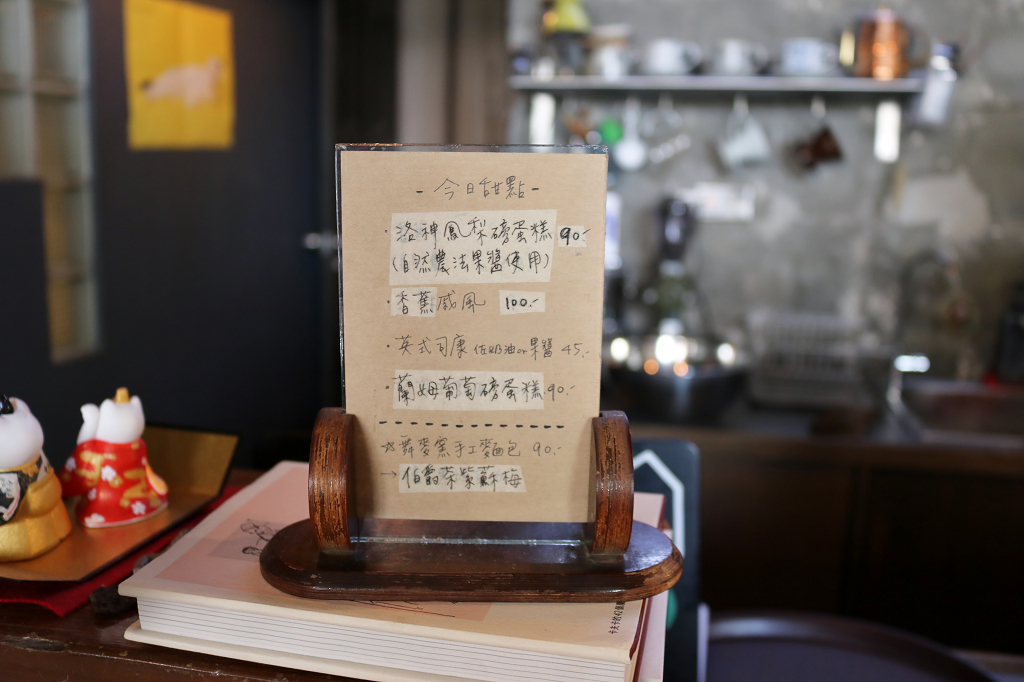 - 今日甜點 -
· 洛神鳳梨磅蛋糕 90.-
(自然農法果醬使用)
· 香蕉戚風 100.-
· 英式司康 佐奶油or果醬 45.-
· 蘭姆葡萄磅蛋糕 90.-
☆ 舞麥窯手工麵包 90.-
→ 伯爵茶紫蘇梅